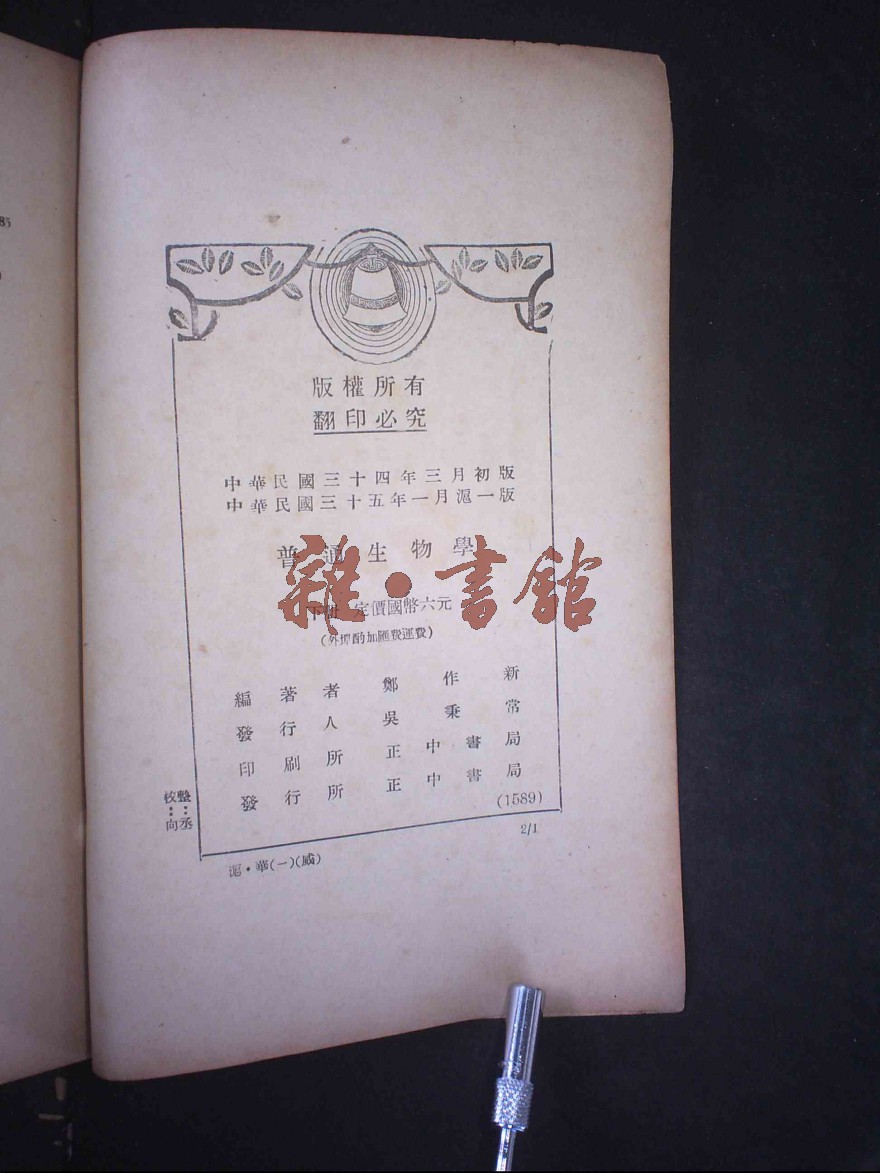 85
版權所有
翻印必究
中華民國三十四年三月初版
中華民國三十五年一月滬一版
普通生物學
雜·書館
下冊 定價國幣六元
(外埠酌加匯費運費)
編著者 鄭作新
發行人 吳秉常
印刷所 正中書局
發行所 正中書局
(1589)
校整
：：
向丞
2/1
滬·華(一)(威)